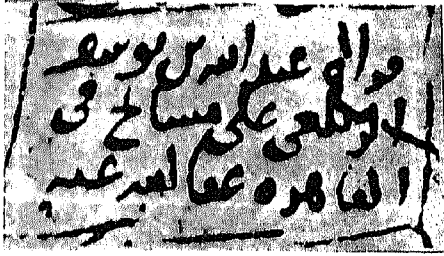 قراه عبد الله بن يوسف
الزيلعي على مسايخ في
القاهره عفا الله عنه